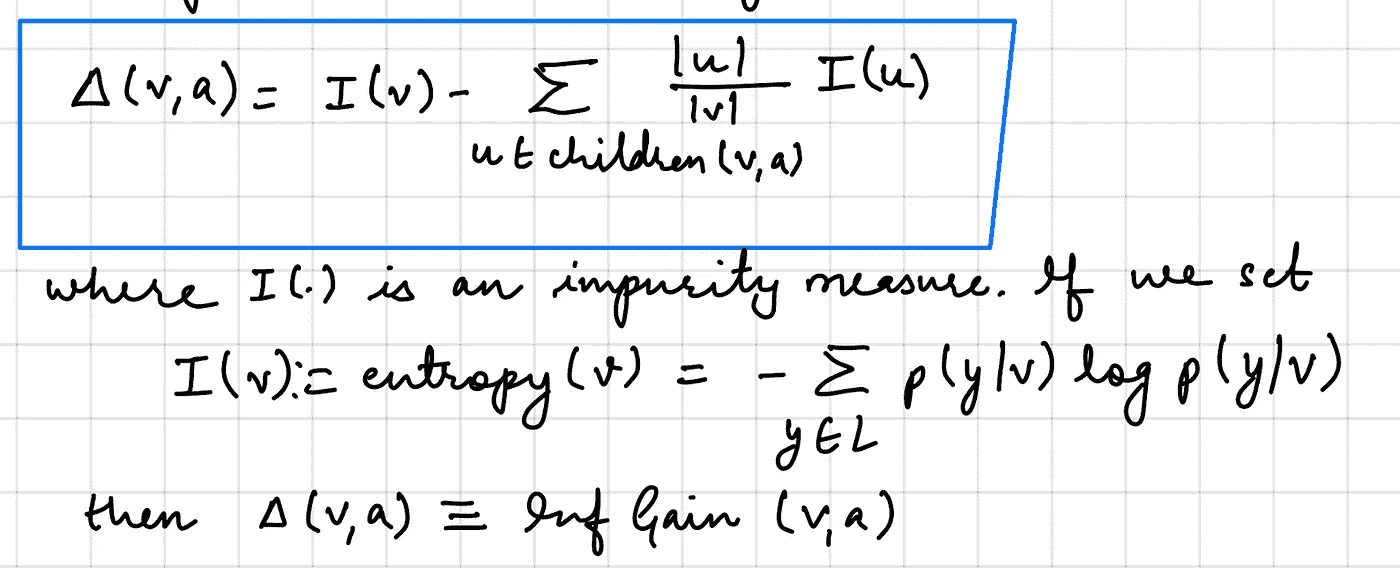 Δ(v,a) = I(v) - Σ |u|/|v| I(u)
u ∈ children(v,a)
where I(.) is an impurity measure. If we set
I(v) := entropy(v) = - Σ p(y|v) log p(y|v)
y ∈ L
then Δ(v,a) ≡ Inf Gain (v,a)